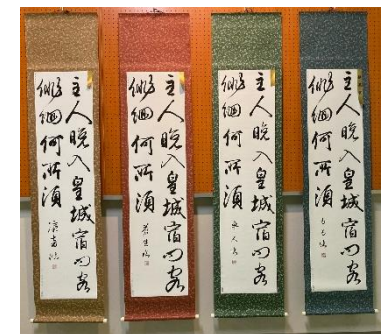 主人晩入皇城宿問客
徘徊何所須
主人晩入皇城宿問客
徘徊何所須
主人晩入皇城宿問客
徘徊何所須
主人晩入皇城宿問客
徘徊何所須